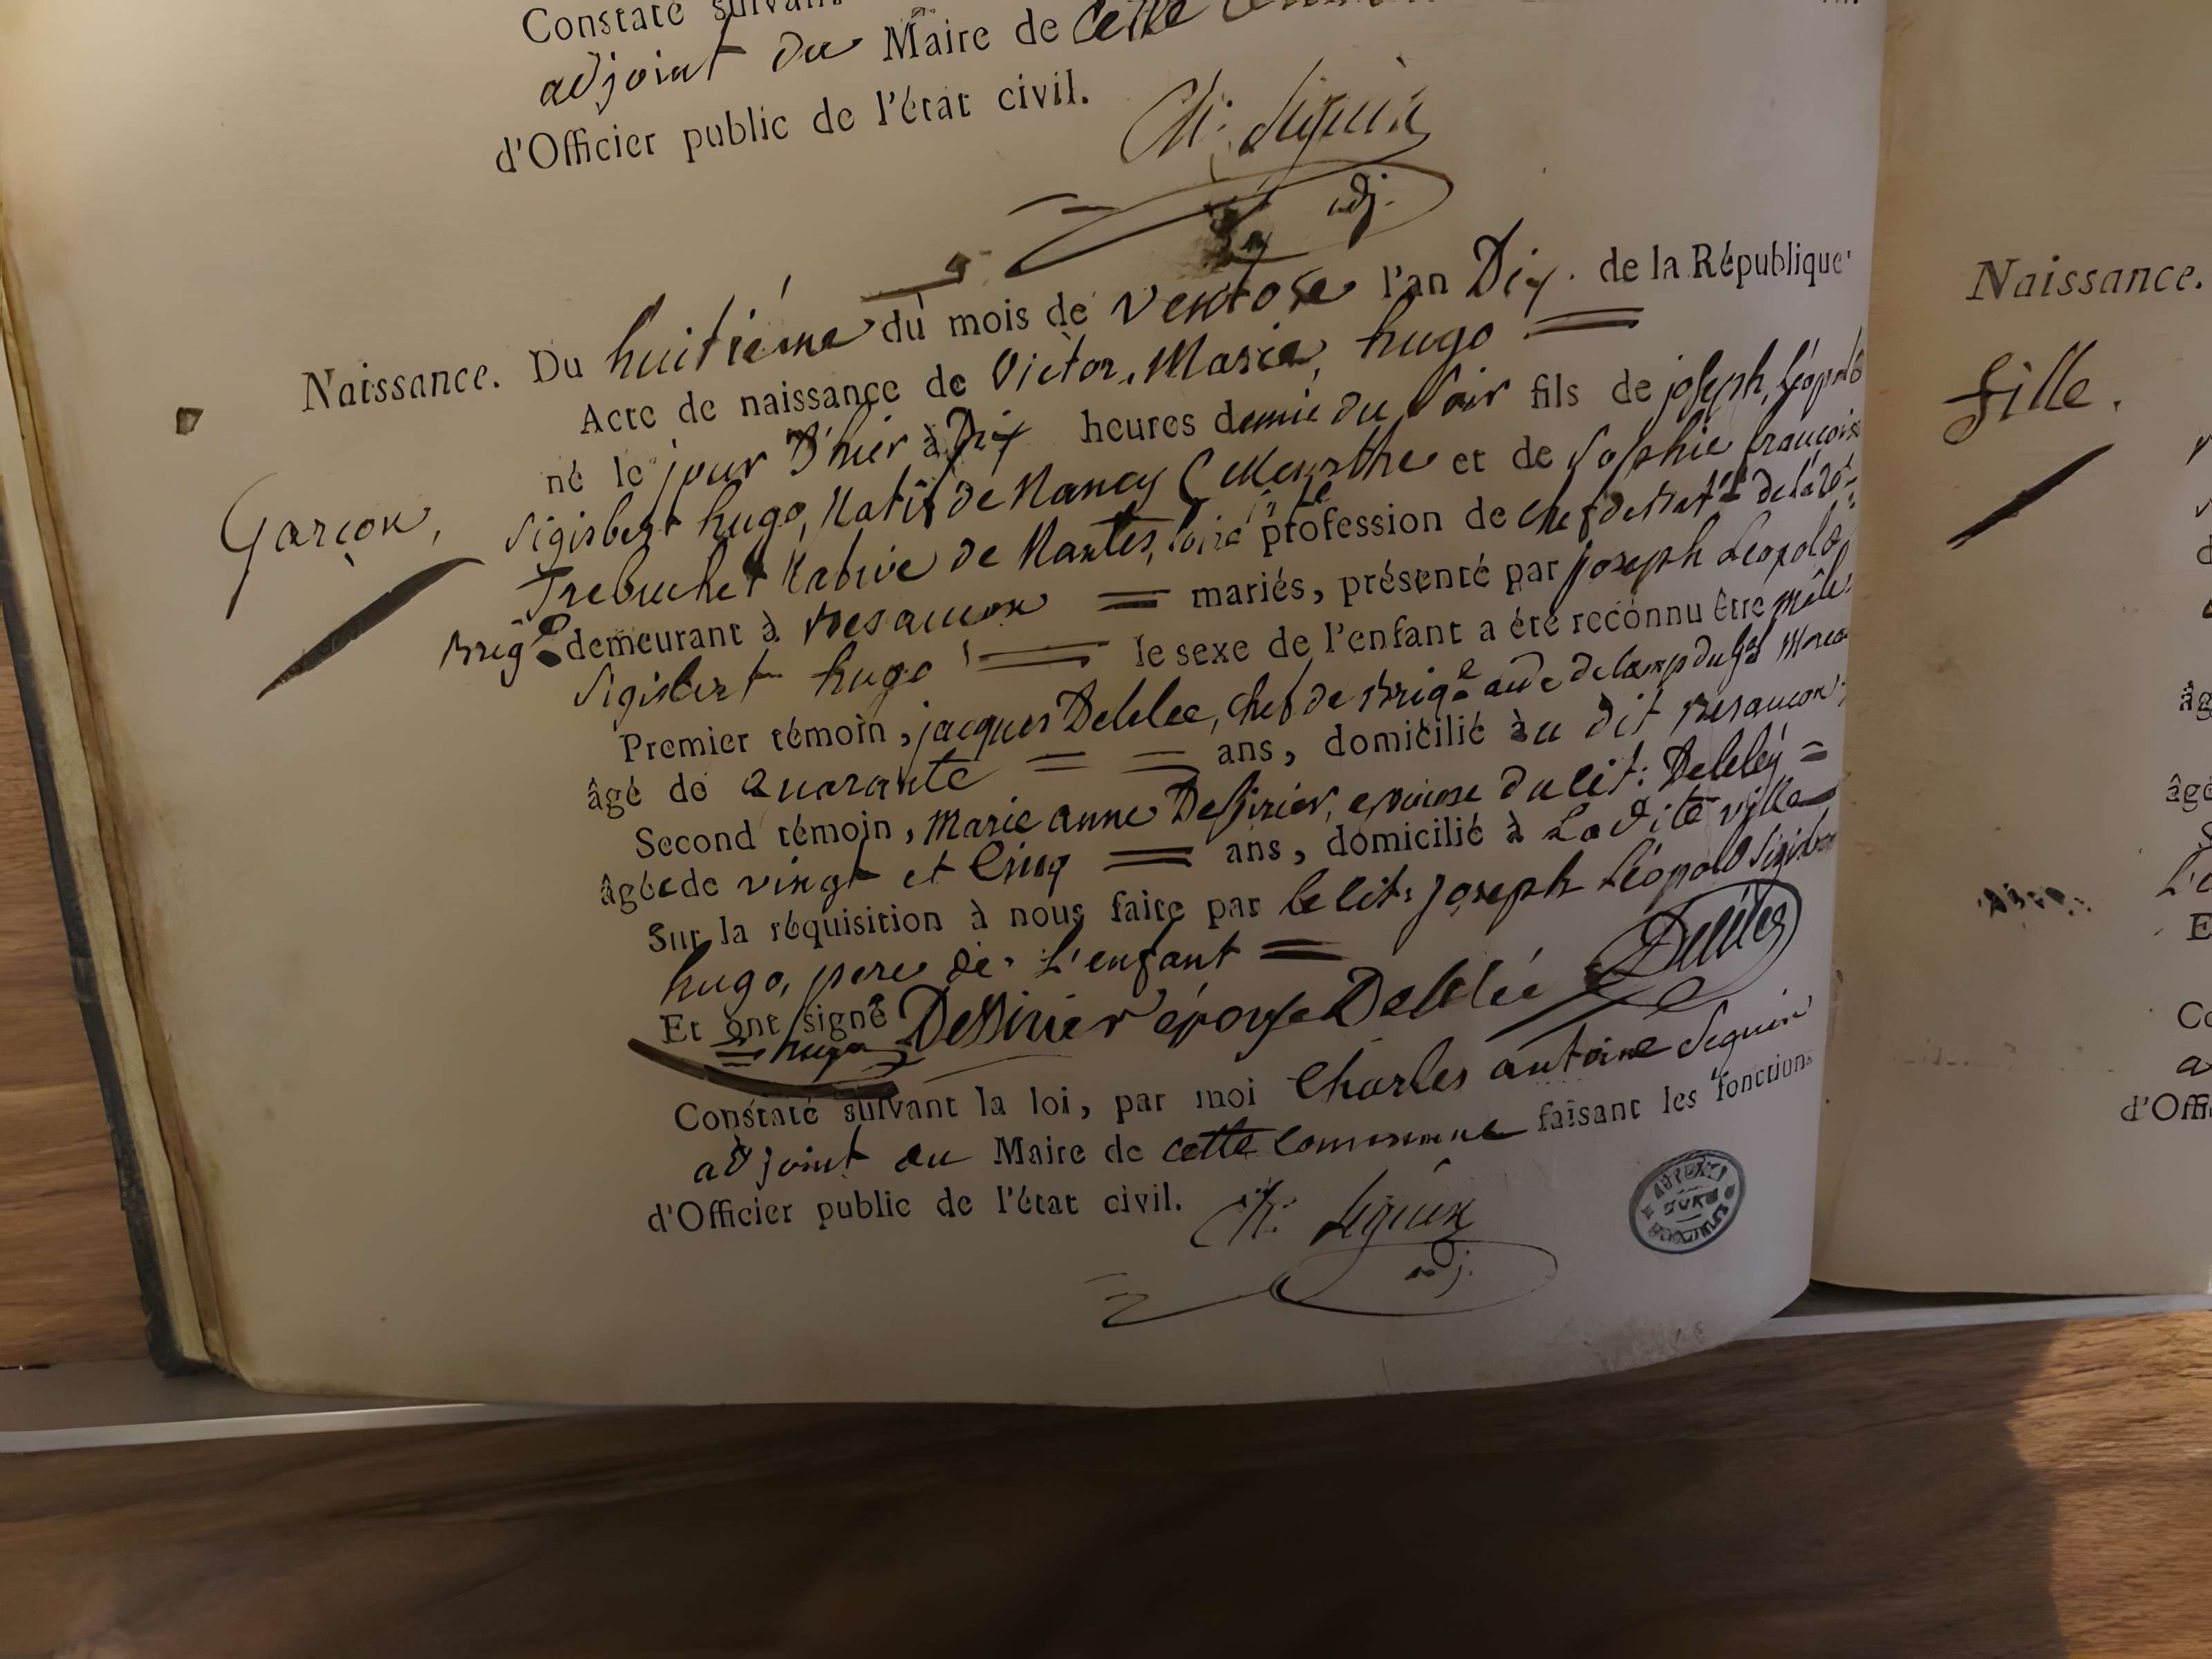 Constaté suivant
adjoint du Maire de cette
d'Officier public de l'état civil.
Ch. Seguin
adj.
Naissance. Du huitième du mois de ventose l'an Dix. de la République
Acte de naissance de Victor, Marie, hugo
né le jour d'hier à Dix heures demie du Soir fils de joseph, Léopold
Garçon, Sigisbert hugo, Natif de Nancy (Meurthe et de Sophie francoise
Trebuchet Native de Nantes, profession de chef de Bat de la 20
Brig demeurant à Besancon mariés, présenté par joseph Leopold
Sigisbert hugo le sexe de l'enfant a été reconnu être mâle
Premier témoin, jacques Delelee, chef de Brig. aide de camp du Gal Moreau
âgé de quarante ans, domicilié àu dit Besancon,
Second témoin, Marie anne Dessirier, epouse du cit: Delelée
âgée de vingt et Cinq ans, domicilié à La dite ville
Sur la réquisition à nous faite par le cit: joseph Léopold Sigisbert
hugo, pere de L'enfant
Et ont signé Dessirier épouse Delelée Delelée
hugo
Constaté suivant la loi, par moi Charles antoine Seguin
adjoint au Maire de cette commune faisant les fonctions
d'Officier public de l'état civil. Ch. Seguin
adj.
Naissance.
fille.
âg
âgé
L'e
E
Co
a
d'Offi